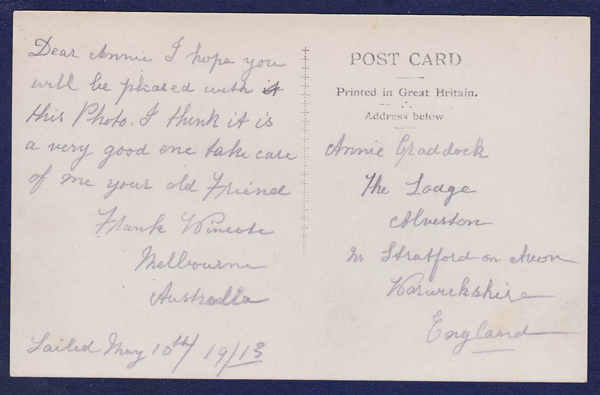 Dear Annie I hope you
will be pleased with it
this Photo. I think it is
a very good one take care
of me your old Friend
Frank Wincote
Melbourne
Australia
Sailed May 10th/19/13
POST CARD
Printed in Great Britain.
Address below
Annie Craddock
The Lodge
Alveston
Nr Stratford on Avon
Warwickshire
England